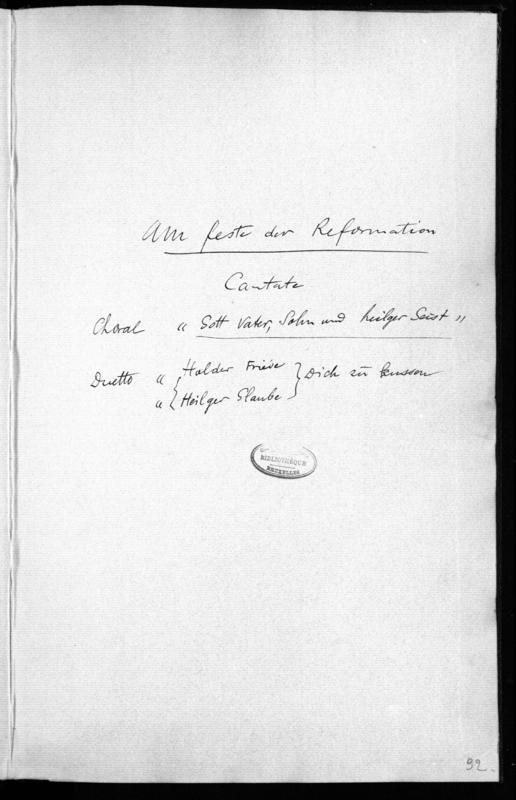 Am feste der Reformation
Cantate
Choral " Gott Vater, Sohn und heilger Geist "
Duetto " { Holder Friede } Dich zu küssen
" { Heilger Glaube }
BIBLIOTHÈQUE
BRUXELLES
92.